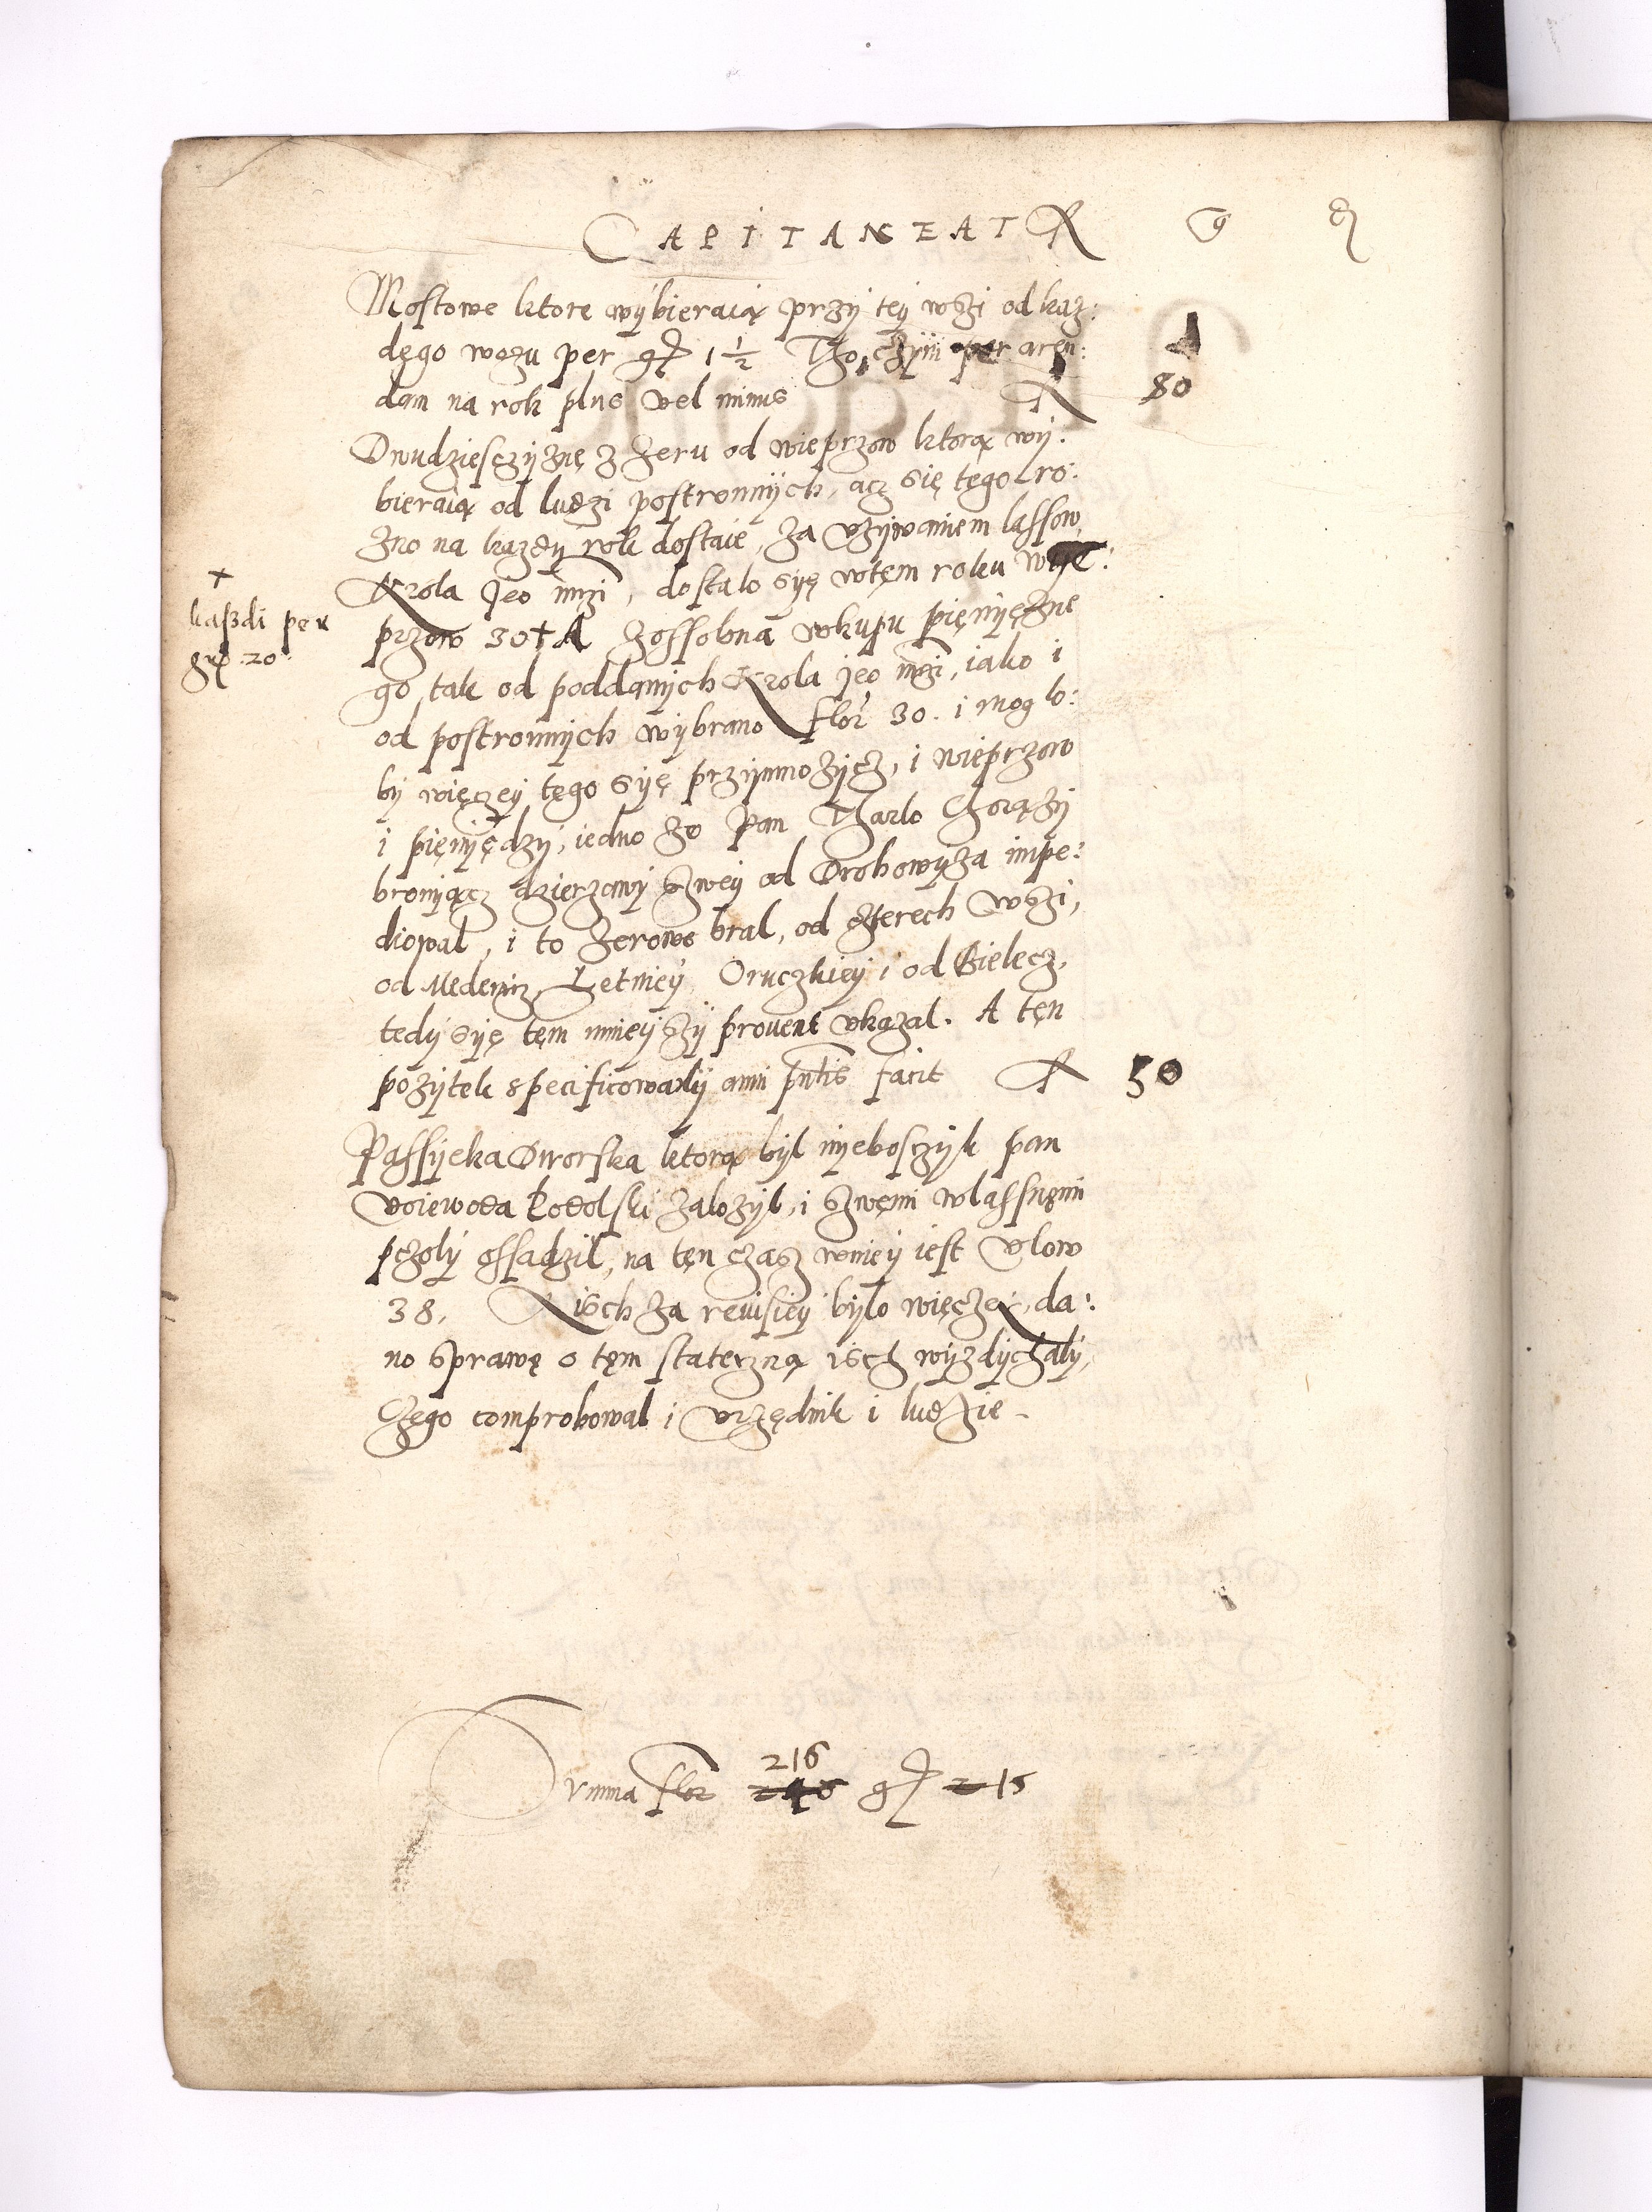 CAPITANEAT
Mostowe ktore wybieraią przy tey wszi od każ:
dęgo wozu per gr 1 1/2 czyni per aren:
dam na rok plus vel minus 80
Dwudziesczyznę z żeru od wieprzow ktorą wy:
bieraią od ludzi postronnych, acz się tego ro:
zno na kazdy rok dostaie, za vzywaniem lassow
Krola Jeo mzi, dostalo sye wtęm roku wye:
przow 30 + A zossobna wkupu pięnyęzne
go, tak od poddanych Krola jeo mzi, iako i
od postronnych wybrano flor 30. i moglo:
by więczey tęgo syę przymnozycz, i wieprzow
i pięnyędzy, iedno ze Pan Tharlo Chorązy
bronyącz dzierzawy szwey od Drohowyza impe:
diowal, i to zerowe bral, od czterech wszi,
od Medenicz, Letniey, Oruczkiey i od Bielecz,
tedy syę tęm mnieyszy prouent vkazal. A tęn
pozytek specificowaly anni pntis facit 50
kaszdi per
gro. 20
Passyeka Dworska ktorą byl nyeboszczyk pan
voiewoda Podolski zalozyl, i szwęmi wlassnęmi
pczoly ossadzil, na tęn czasz wniey iest vlow
38, A isch za reuisiey bylo więczey, da:
no sprawę o tęm stateczną isch wyzdychaly,
Czego comprobowal i vrzędnik i ludzie
Summa flor 216 gr 15